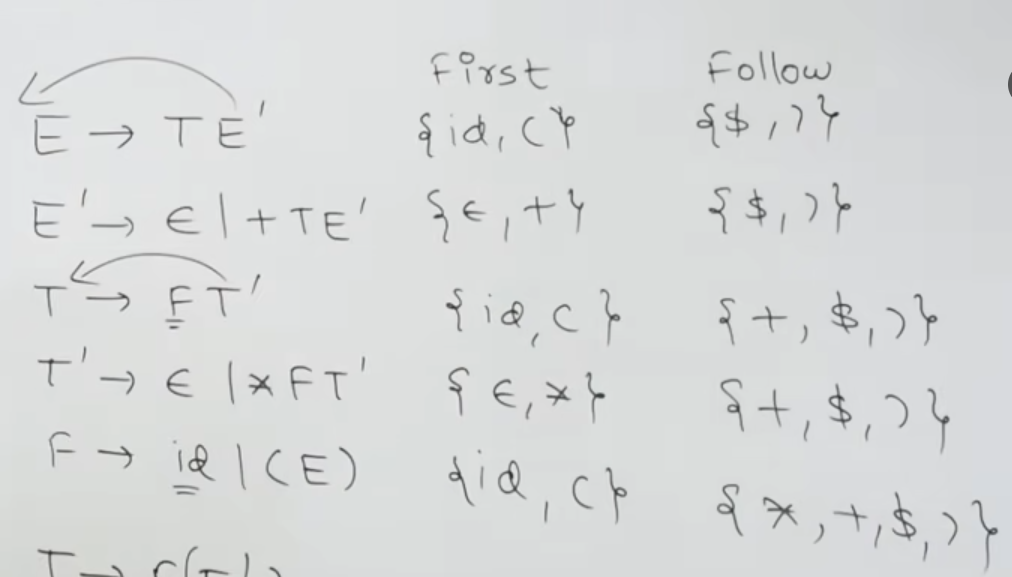 First Follow
E → TE' {id, (} {$, )}
E' → ϵ | + TE' {ϵ, +} {$, )}
T → FT' {id, (} {+, $, )}
T' → ϵ | * FT' {ϵ, *} {+, $, )}
F → id | (E) {id, (} {*, +, $, )}